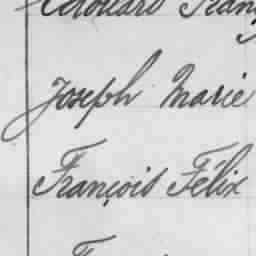 Edouard
Joseph Marie
François Félix